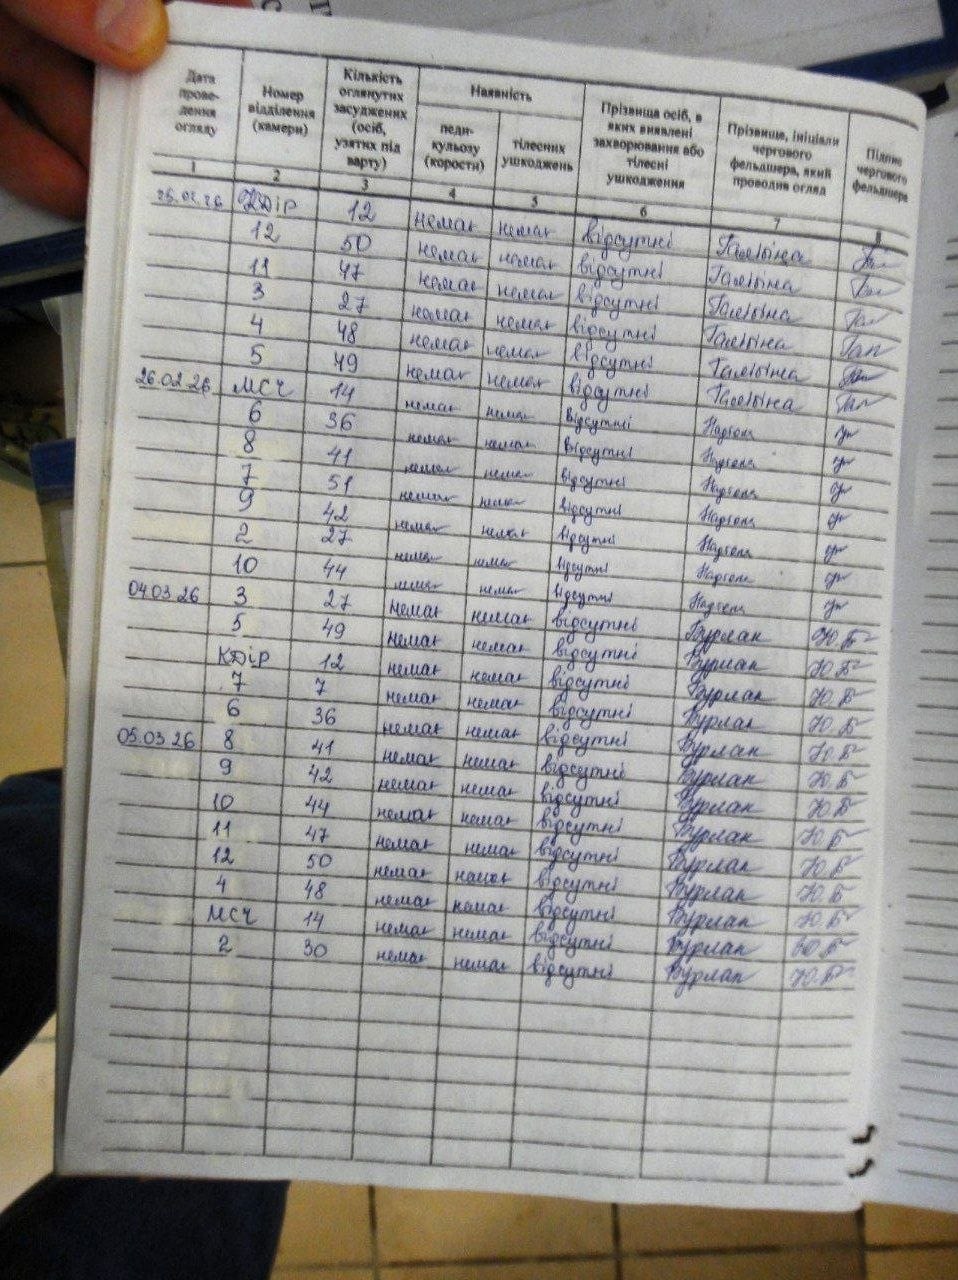 Дата проведення огляду | Номер відділення (камери) | Кількість оглянутих засуджених (осіб, узятих під варту) | Наявність | Прізвища осіб, в яких виявлені захворювання або тілесні ушкодження | Прізвище, ініціали чергового фельдшера, який проводив огляд | Підпис чергового фельдшера
педикульозу (корости) | тілесних ушкоджень
1 | 2 | 3 | 4 | 5 | 6 | 7 | 8
25.02.26 | КДіР | 12 | немає | немає | відсутні
12 | 50 | немає | немає | відсутні
11 | 47 | немає | немає | відсутні
3 | 27 | немає | немає | відсутні
4 | 48 | немає | немає | відсутні
5 | 49 | немає | немає | відсутні
26.02.26 | МСЧ | 14 | немає | немає | відсутні
6 | 36 | немає | немає | відсутні
8 | 41 | немає | немає | відсутні
7 | 51 | немає | немає | відсутні
9 | 42 | немає | немає | відсутні
2 | 27 | немає | немає | відсутні
10 | 44 | немає | немає | відсутні
04.03.26 | 3 | 27 | немає | немає | відсутні | Бурлак | Ю.Б
5 | 49 | немає | немає | відсутні | Бурлак | Ю.Б
КДіР | 12 | немає | немає | відсутні | Бурлак | Ю.Б
7 | 7 | немає | немає | відсутні | Бурлак | Ю.Б
6 | 36 | немає | немає | відсутні | Бурлак | Ю.Б
05.03.26 | 8 | 41 | немає | немає | відсутні | Бурлак | Ю.Б
9 | 42 | немає | немає | відсутні | Бурлак | Ю.Б
10 | 44 | немає | немає | відсутні | Бурлак | Ю.Б
11 | 47 | немає | немає | відсутні | Бурлак | Ю.Б
12 | 50 | немає | немає | відсутні | Бурлак | Ю.Б
4 | 48 | немає | немає | відсутні | Бурлак | Ю.Б
МСЧ | 14 | немає | немає | відсутні | Бурлак | Ю.Б
2 | 30 | немає | немає | відсутні | Бурлак | Ю.Б